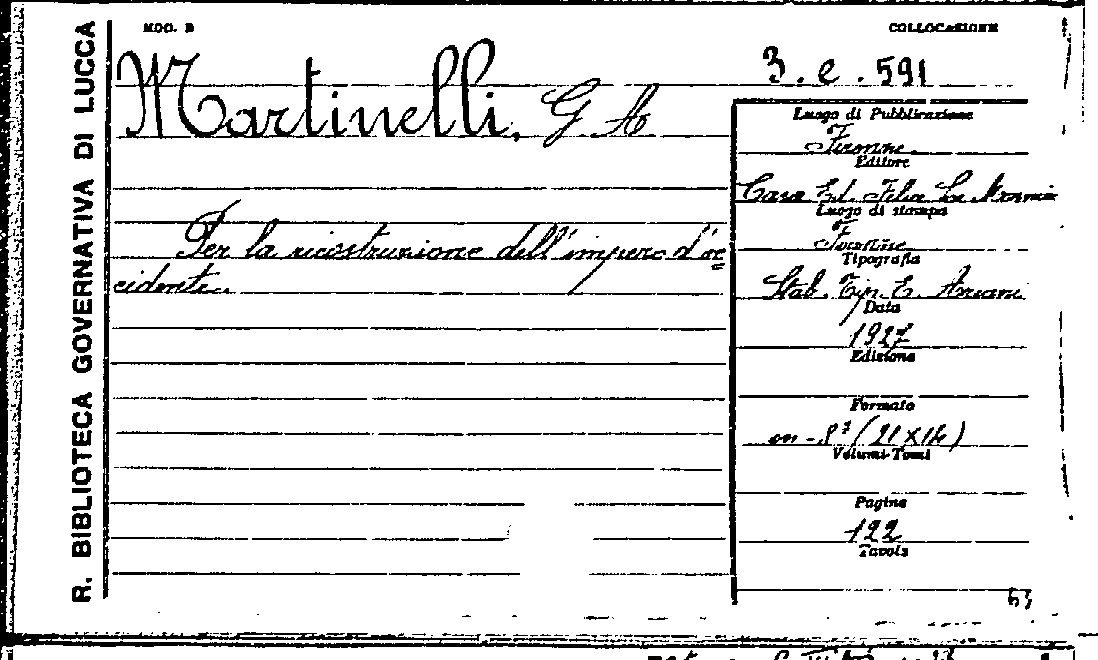 R. BIBLIOTECA GOVERNATIVA DI LUCCA
MOD. B
COLLOCAZIONE
Martinelli, G A
3. e. 591
Luogo di Pubblicazione
Firenze
Editore
Casa Ed. Felice Le Monnier
Luogo di stampa
Firenze
Tipografia
Stab. Tip. E. Ariani
Data
1927
Edizione
Formato
in-8° (21x14)
Volumi-Tomi
Pagine
122
Tavole
Per la ricostruzione dell'impero d'oc
cidente.
63